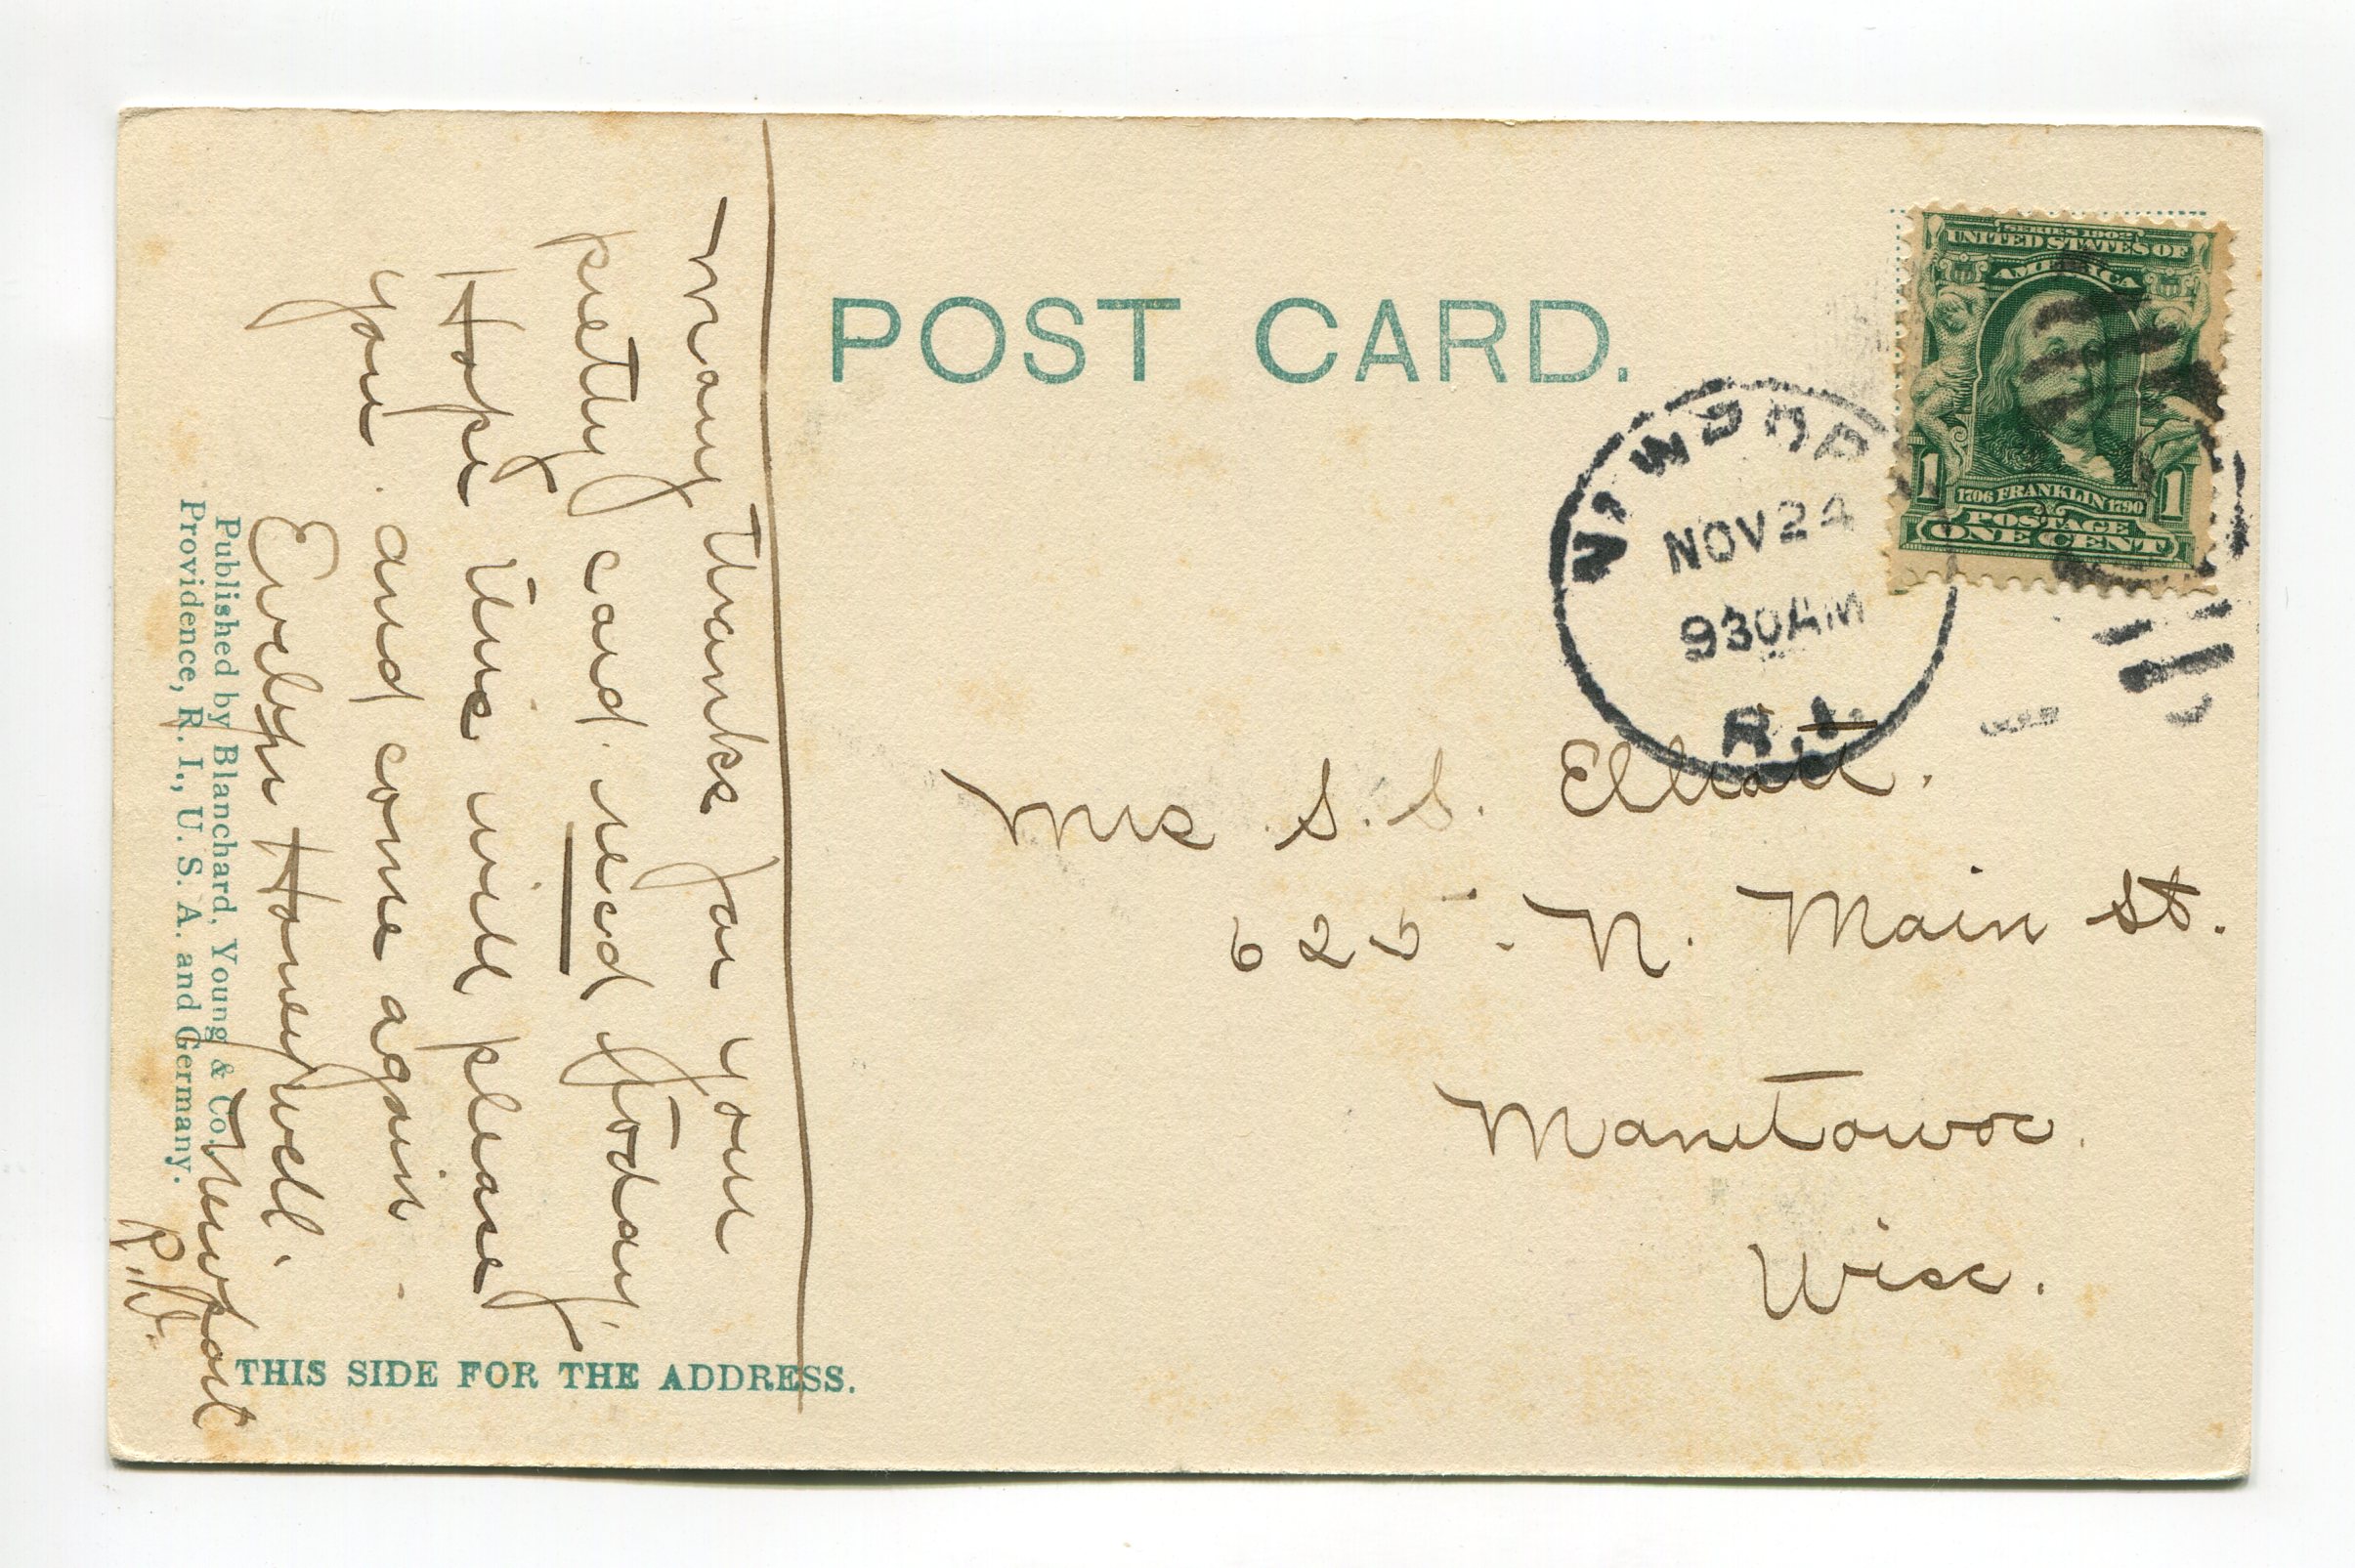 POST CARD.
SERIES 1902
UNITED STATES OF
AMERICA
1706 FRANKLIN 1790
1 1
POSTAGE
ONE CENT
NEWPOR
NOV 24
930 AM
R.I.
Mrs S. S. Elliott.
625 - N. Main St.
Manitowoc.
Wisc.
Many thanks for your
pretty card. recd today,
Hope this will please
you. and come again -
Evelyn Honeywell.
Newport
R.I.
Published by Blanchard, Young & Co.,
Providence, R. I., U. S. A. and Germany.
THIS SIDE FOR THE ADDRESS.